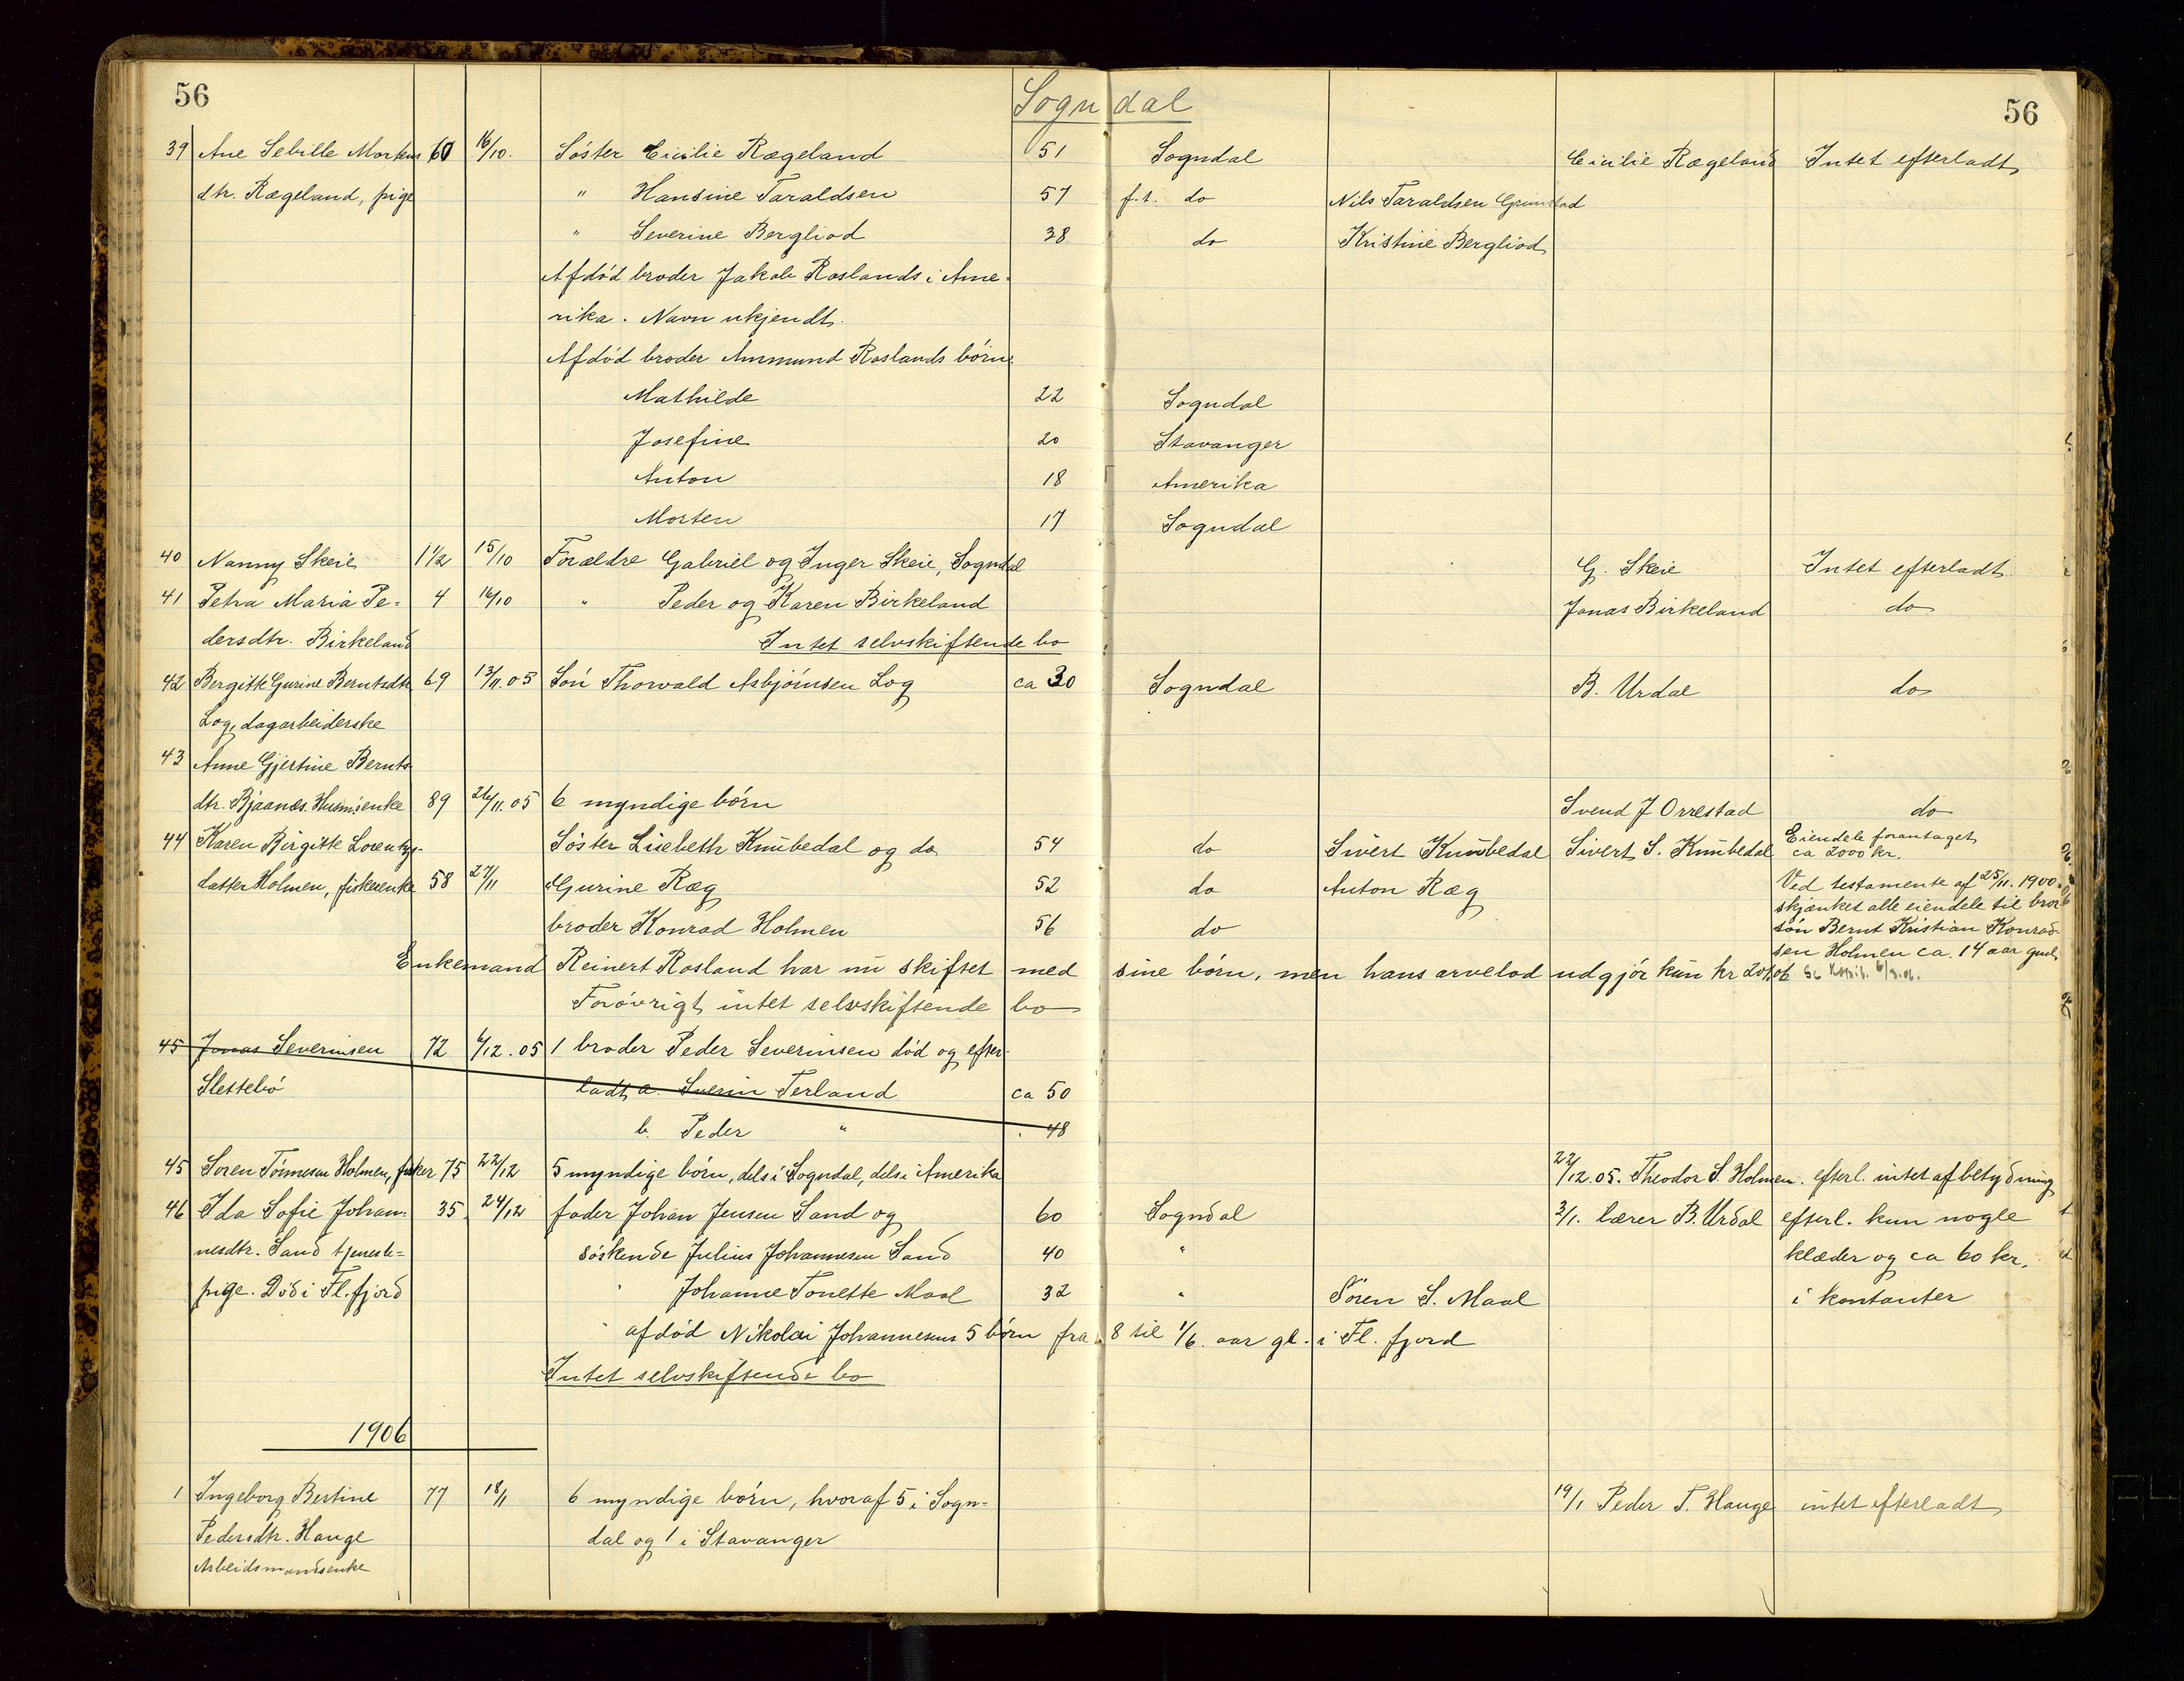 56 Sogndal 56
39 Ane Sebille Mortens 60 16/10. Söster Cicilie Rægeland 51 Sogndal Cicilie Rægeland Intet efterladt
dtr. Rægeland, pige " Hansine Taraldsen 57 f.t. do Nils Taraldsen Grimstad
" Severine Bergliod 38 do Kristine Bergliod
Afdöd broder Jakob Roslands i Ame-
rika. Navn ukjendt.
Afdöd broder Ammund Roslands börn:
Mathilde 22 Sogndal
Josefine 20 Stavanger
Anton 18 Amerika
Morten 17 Sogndal
40 Nanny Skeie 1 1/2 15/10 Forældre Gabriel og Inger Skeie, Sogndal G. Skeie Intet efterladt
41 Petra Maria Pe= 4 16/10 " Peder og Karen Birkeland Jonas Birkeland do
dersdtr. Birkeland Intet selvskiftende bo
42 Bergitte Gurine Berntsdtr 69 13/11.05 Sön Thorvald Asbjörnsen Log ca 30 Sogndal B. Urdal do
Log, dagarbeiderske
43 Anne Gjertine Bernts
dtr. Bjaanes. Husm.enke 89 26/11.05 6 myndige börn Svend J Orrestad do
44 Karen Birgitte Lorentz- Söster Lisebeth Knubedal og do 54 do Sivert Knubedal Sivert S. Knubedal Eiendele foruntaget
ca 2000 kr.
datter Holmen, fiskerenke 58 27/11 Gurine Ræg 52 do Anton Ræg Ved testamente af 25/11. 1900
skjænket alle eiendele til bror
broder Konrad Holmen 56 do sön Bernt Kristian Konrad-
sen Holmen ca. 14 aar gml.
Enkemand Reinert Rosland har nu skiftet med sine börn, men hans arvelod udgjör kun kr 201,06
Foröverigt intet selvskiftende bo
45 Jonas Severinsen 72 6/12.05 1 broder Peder Severinsen död og efter-
Slettebö ladt a. Sverin Terland ca 50
b. Peder " 48
45 Soren Tönnesen Holmen, fisker 75 22/12 5 myndige börn, dels i Sogndal, dels i Amerika 22/12.05. Theodor S. Holmen. efterl. intet af betydning
46 Ida Sofie Johan- 35 24/12 fader Johan Jensen Sand og 60 Sogndal 3/1. lærer B. Urdal efterl. kun nogle
nesdtr. Sand tjeneste= söskende Julius Johannesen Sand 40 " klæder og ca 60 kr.
pige. Död i Fl.fjord " Johanne Tonette Maal 32 " Sören S. Maal i kontanter
" afdöd Nikolai Johannesens 5 börn fra 8 til 1/6 aar gl. i Fl. fjord
Intet selvskiftende bo
1906
1 Ingeborg Bertine 77 18/1 6 myndige börn, hvoraf 5 i Sogn= 19/1 Peder T. Hauge intet efterladt
Pedersdtr. Hauge dal og 1 i Stavanger
Arbeidsmandsenke